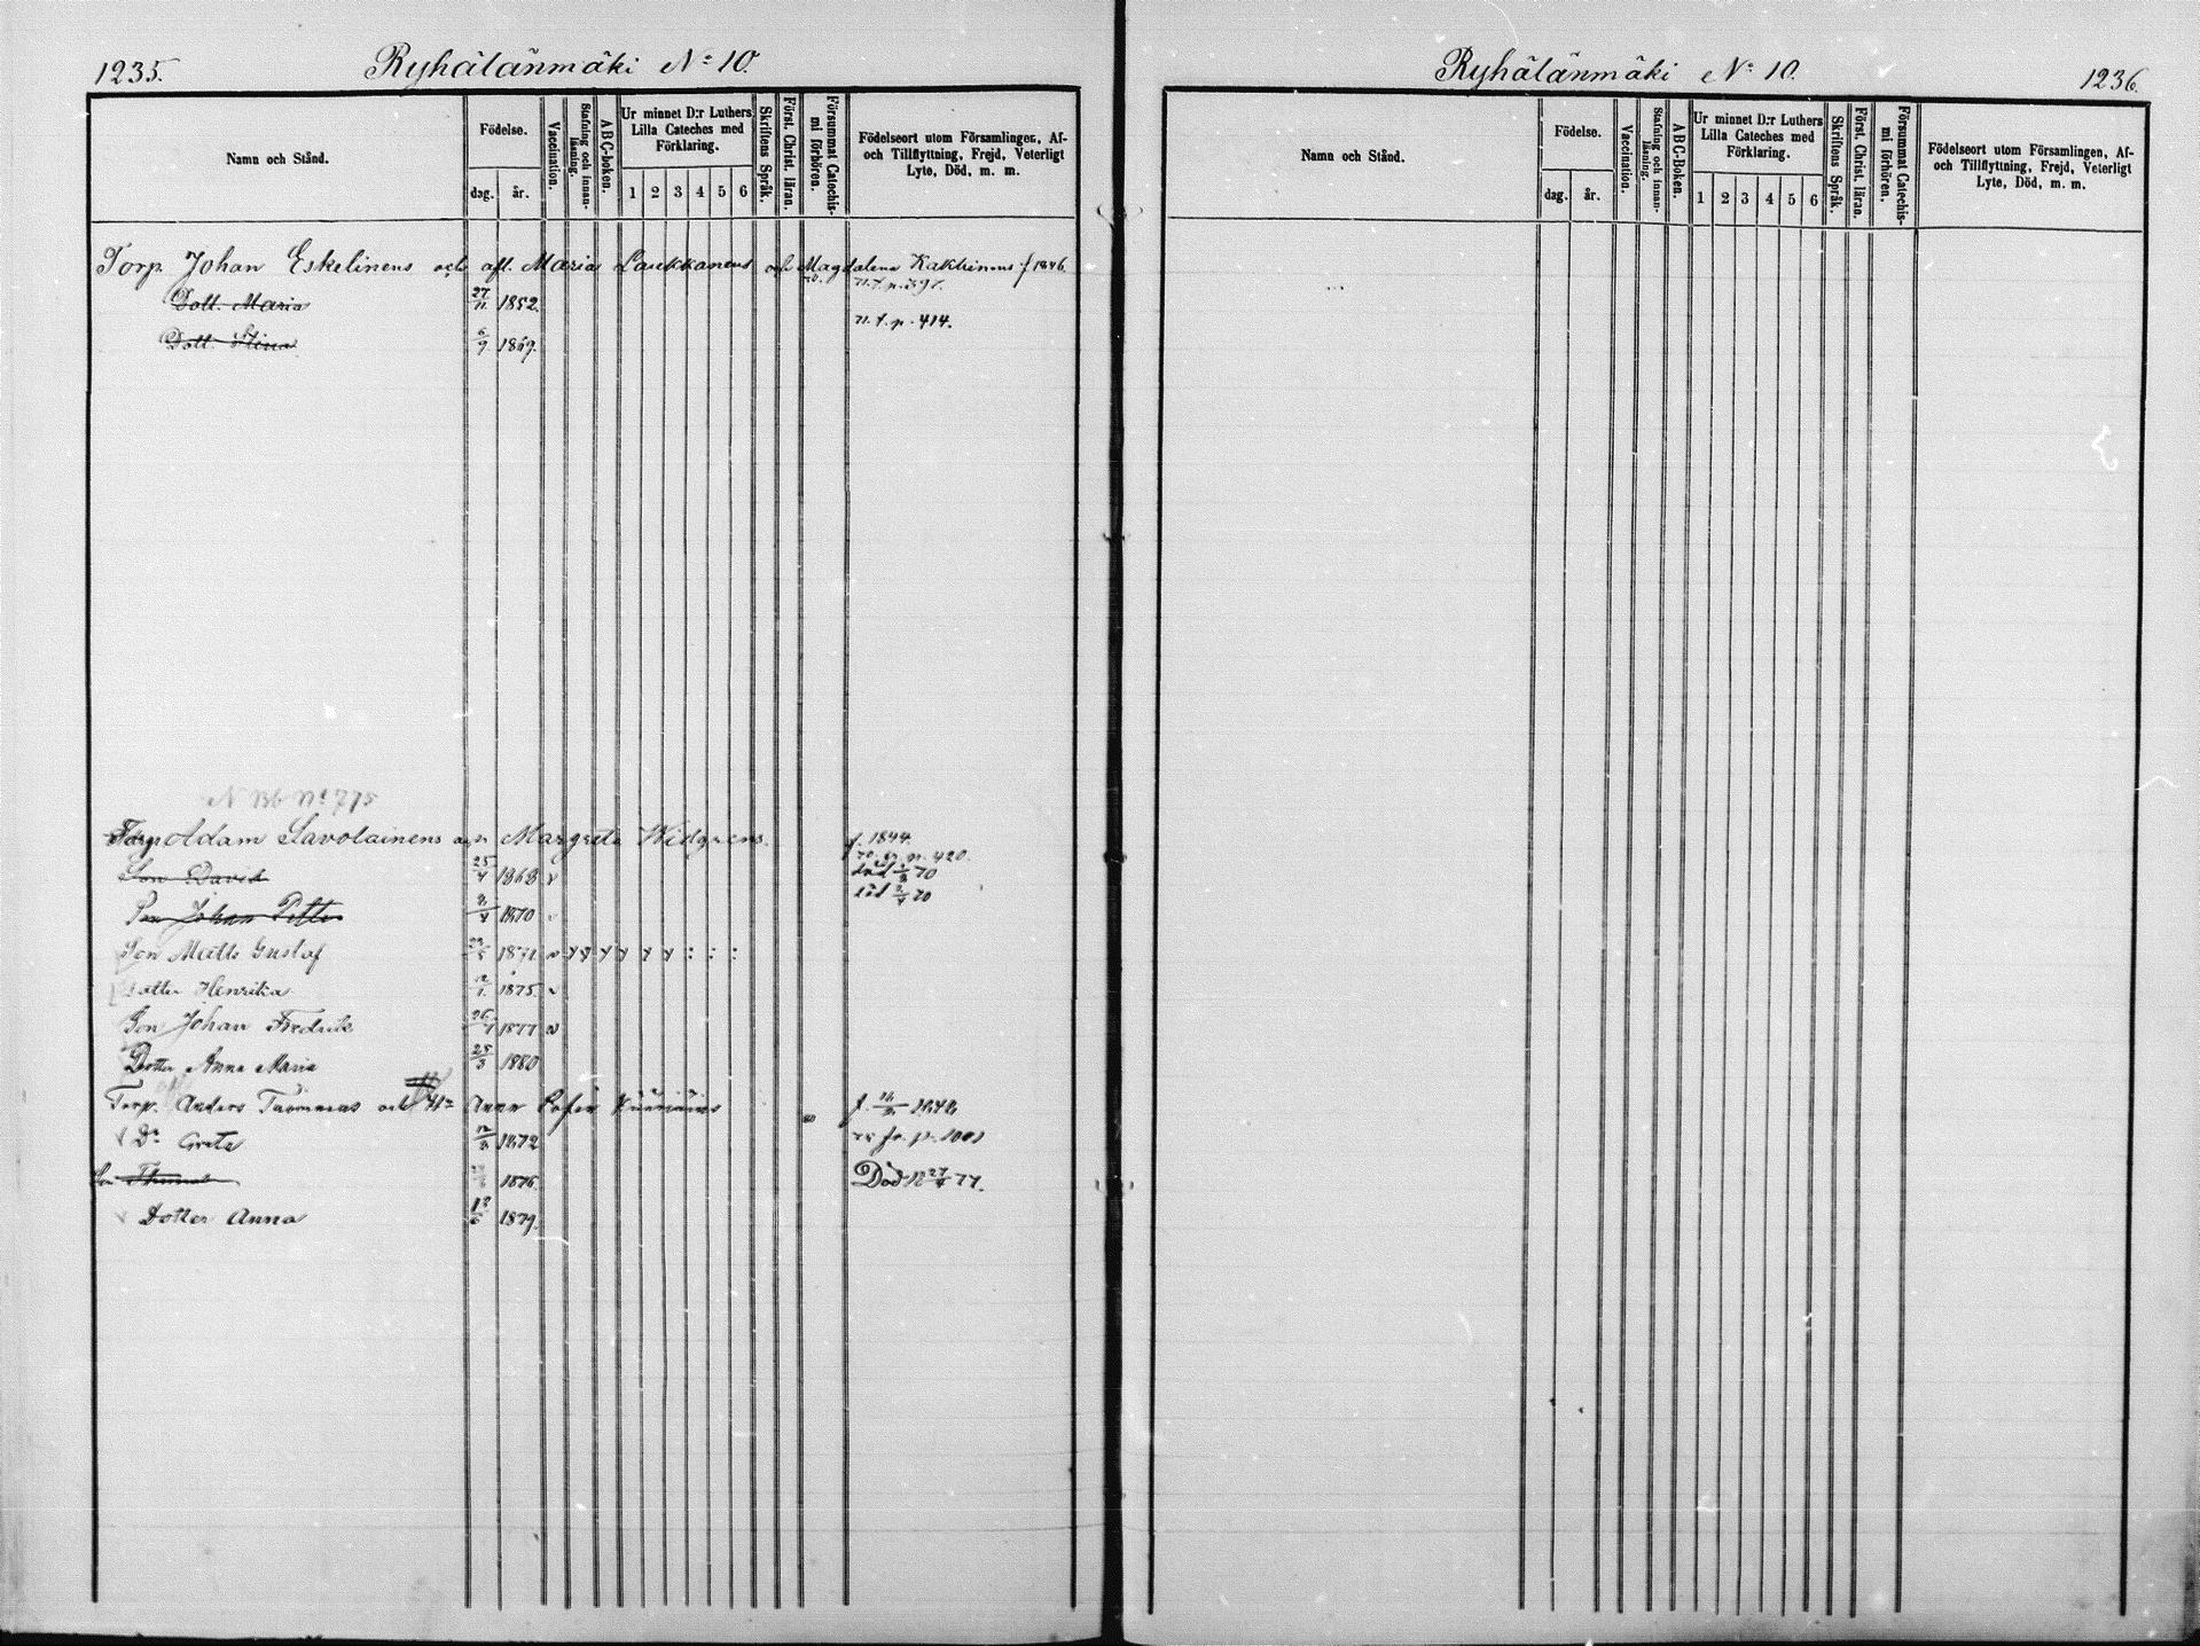 1235. Ryhälänmäki No 10.
Namn och Stånd.
Födelse.
dag. år.
Vaccination.
Stafning och innan-
läsning.
ABC-boken.
Ur minnet D:r Luthers
Lilla Cateches med
Förklaring.
1 2 3 4 5 6
Skriftens Språk.
Först. Christ. läran.
Försummat Catechis-
mi förhören.
Födelseort utom Församlingen, Af-
och Tillflyttning, Frejd, Veterligt
Lyte, Död, m. m.
Torp. Johan Eskelinens och afl. Maria Laukkanens och Magdalena f 1846.
Dott. Maria 27/11 1852.
n. f. p. 414.
Dott. Stina 6/9 1869.
Torp Adam Savolainens Margreta Widgrens. f. 1844.
Son David 25/4 1868 v död 70
Son Johan Petter 1870 död 70
Son Matts Gustaf 1871
Dotter Henrika 1875. v
Son Johan Fredrik 26 1877 v
Dotter Anna Maria 25/3 1880
Torp. Anders och Anna Sofia f.
Dr Greta 1872
Son 1876. Död 18 27/4 77.
Dotter Anna 1879.
Ryhälänmäki No 10. 1236.
Namn och Stånd.
Födelse.
dag. år.
Vaccination.
Stafning och innan-
läsning.
ABC-Boken.
Ur minnet D:r Luthers
Lilla Cateches med
Förklaring.
1 2 3 4 5 6
Skriftens Språk.
Först. Christ. läran.
Försummat Catechis-
mi förhören.
Födelseort utom Församlingen, Af-
och Tillflyttning, Frejd, Veterligt
Lyte, Död, m. m.